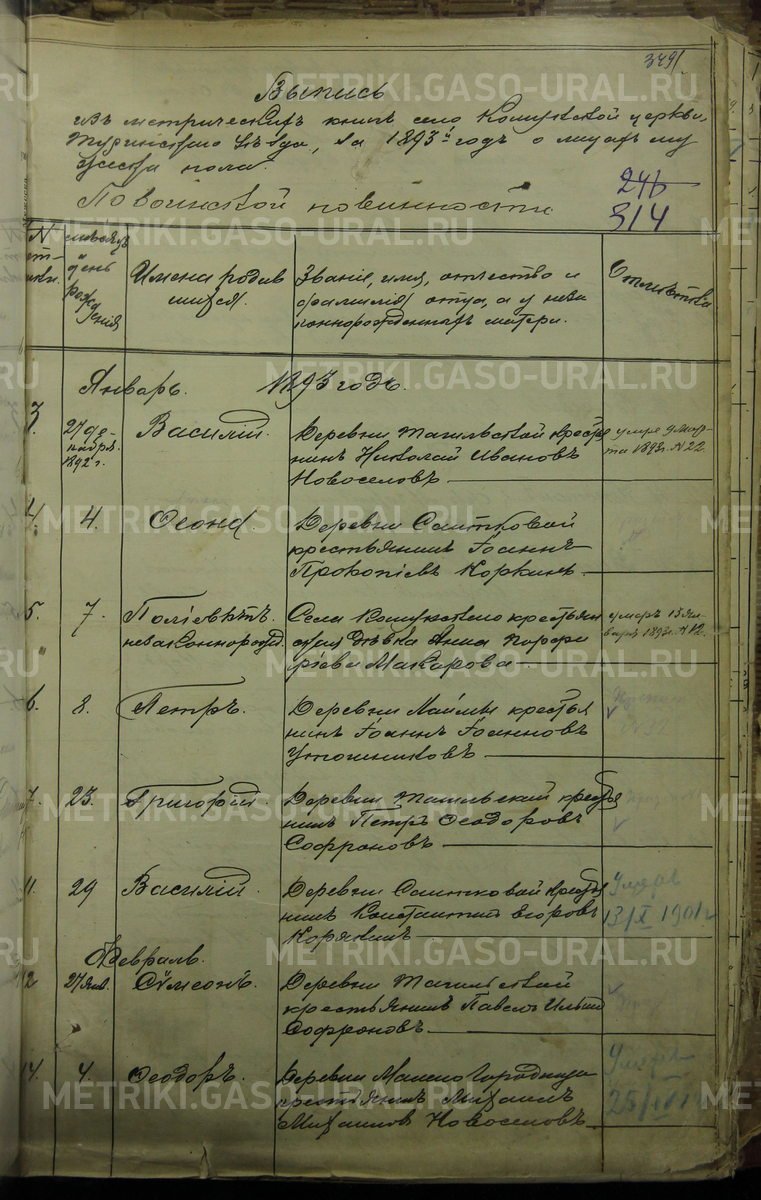 349
Выпись
изъ метрическихъ книгъ села церкви,
Туринскаго уѣзда, за 1893й годъ о лицахъ му
жеска пола.
По воинской повинности
246
314
N
день
рож
денія
Имена родив
шихся.
Званіе, имя, отчество и
фамилія отца, а у неза
коннорожденныхъ матери.
Отмѣтка
Январь. 1893 годъ.
3.
27 де-
кабря
1892 г.
Василій.
Деревни Тагильской крестья
нинъ Николай Ивановъ
Новоселовъ
умре 9 мар-
та 1893г. N 22.
4.
4.
Ѳеона
Деревни Саитковой
крестьянинъ Іоаннъ
Прокопіевъ Коркинъ
5.
7.
Поліевктъ
незаконнорожд.
Села крестьян
ская дѣвка Анна Порфи
ріева Макарова
умеръ 13 ян-
варя 1893г. N 12.
6.
8.
Петръ.
Деревни крестья
нинъ Іоаннъ Іоанновъ
7.
23.
Григорій.
Деревни Тагильской крестья
нинъ Петръ Ѳеодоровъ
Софроновъ
11.
29
Василій.
Деревни Саитковой крестья
нинъ Константинъ Егоровъ
Корякинъ
Умеръ
13/X 1901 г
Февраль.
12
27 янв.
Сѵмеонъ.
Деревни Тагильской
крестьянинъ Павелъ Ильинъ
Софроновъ
14.
4.
Ѳеодоръ.
Деревни Мало Городище
крестьянинъ Михаилъ
Михаиловъ Новоселовъ
Умеръ
METRIKI.GASO-URAL.RU